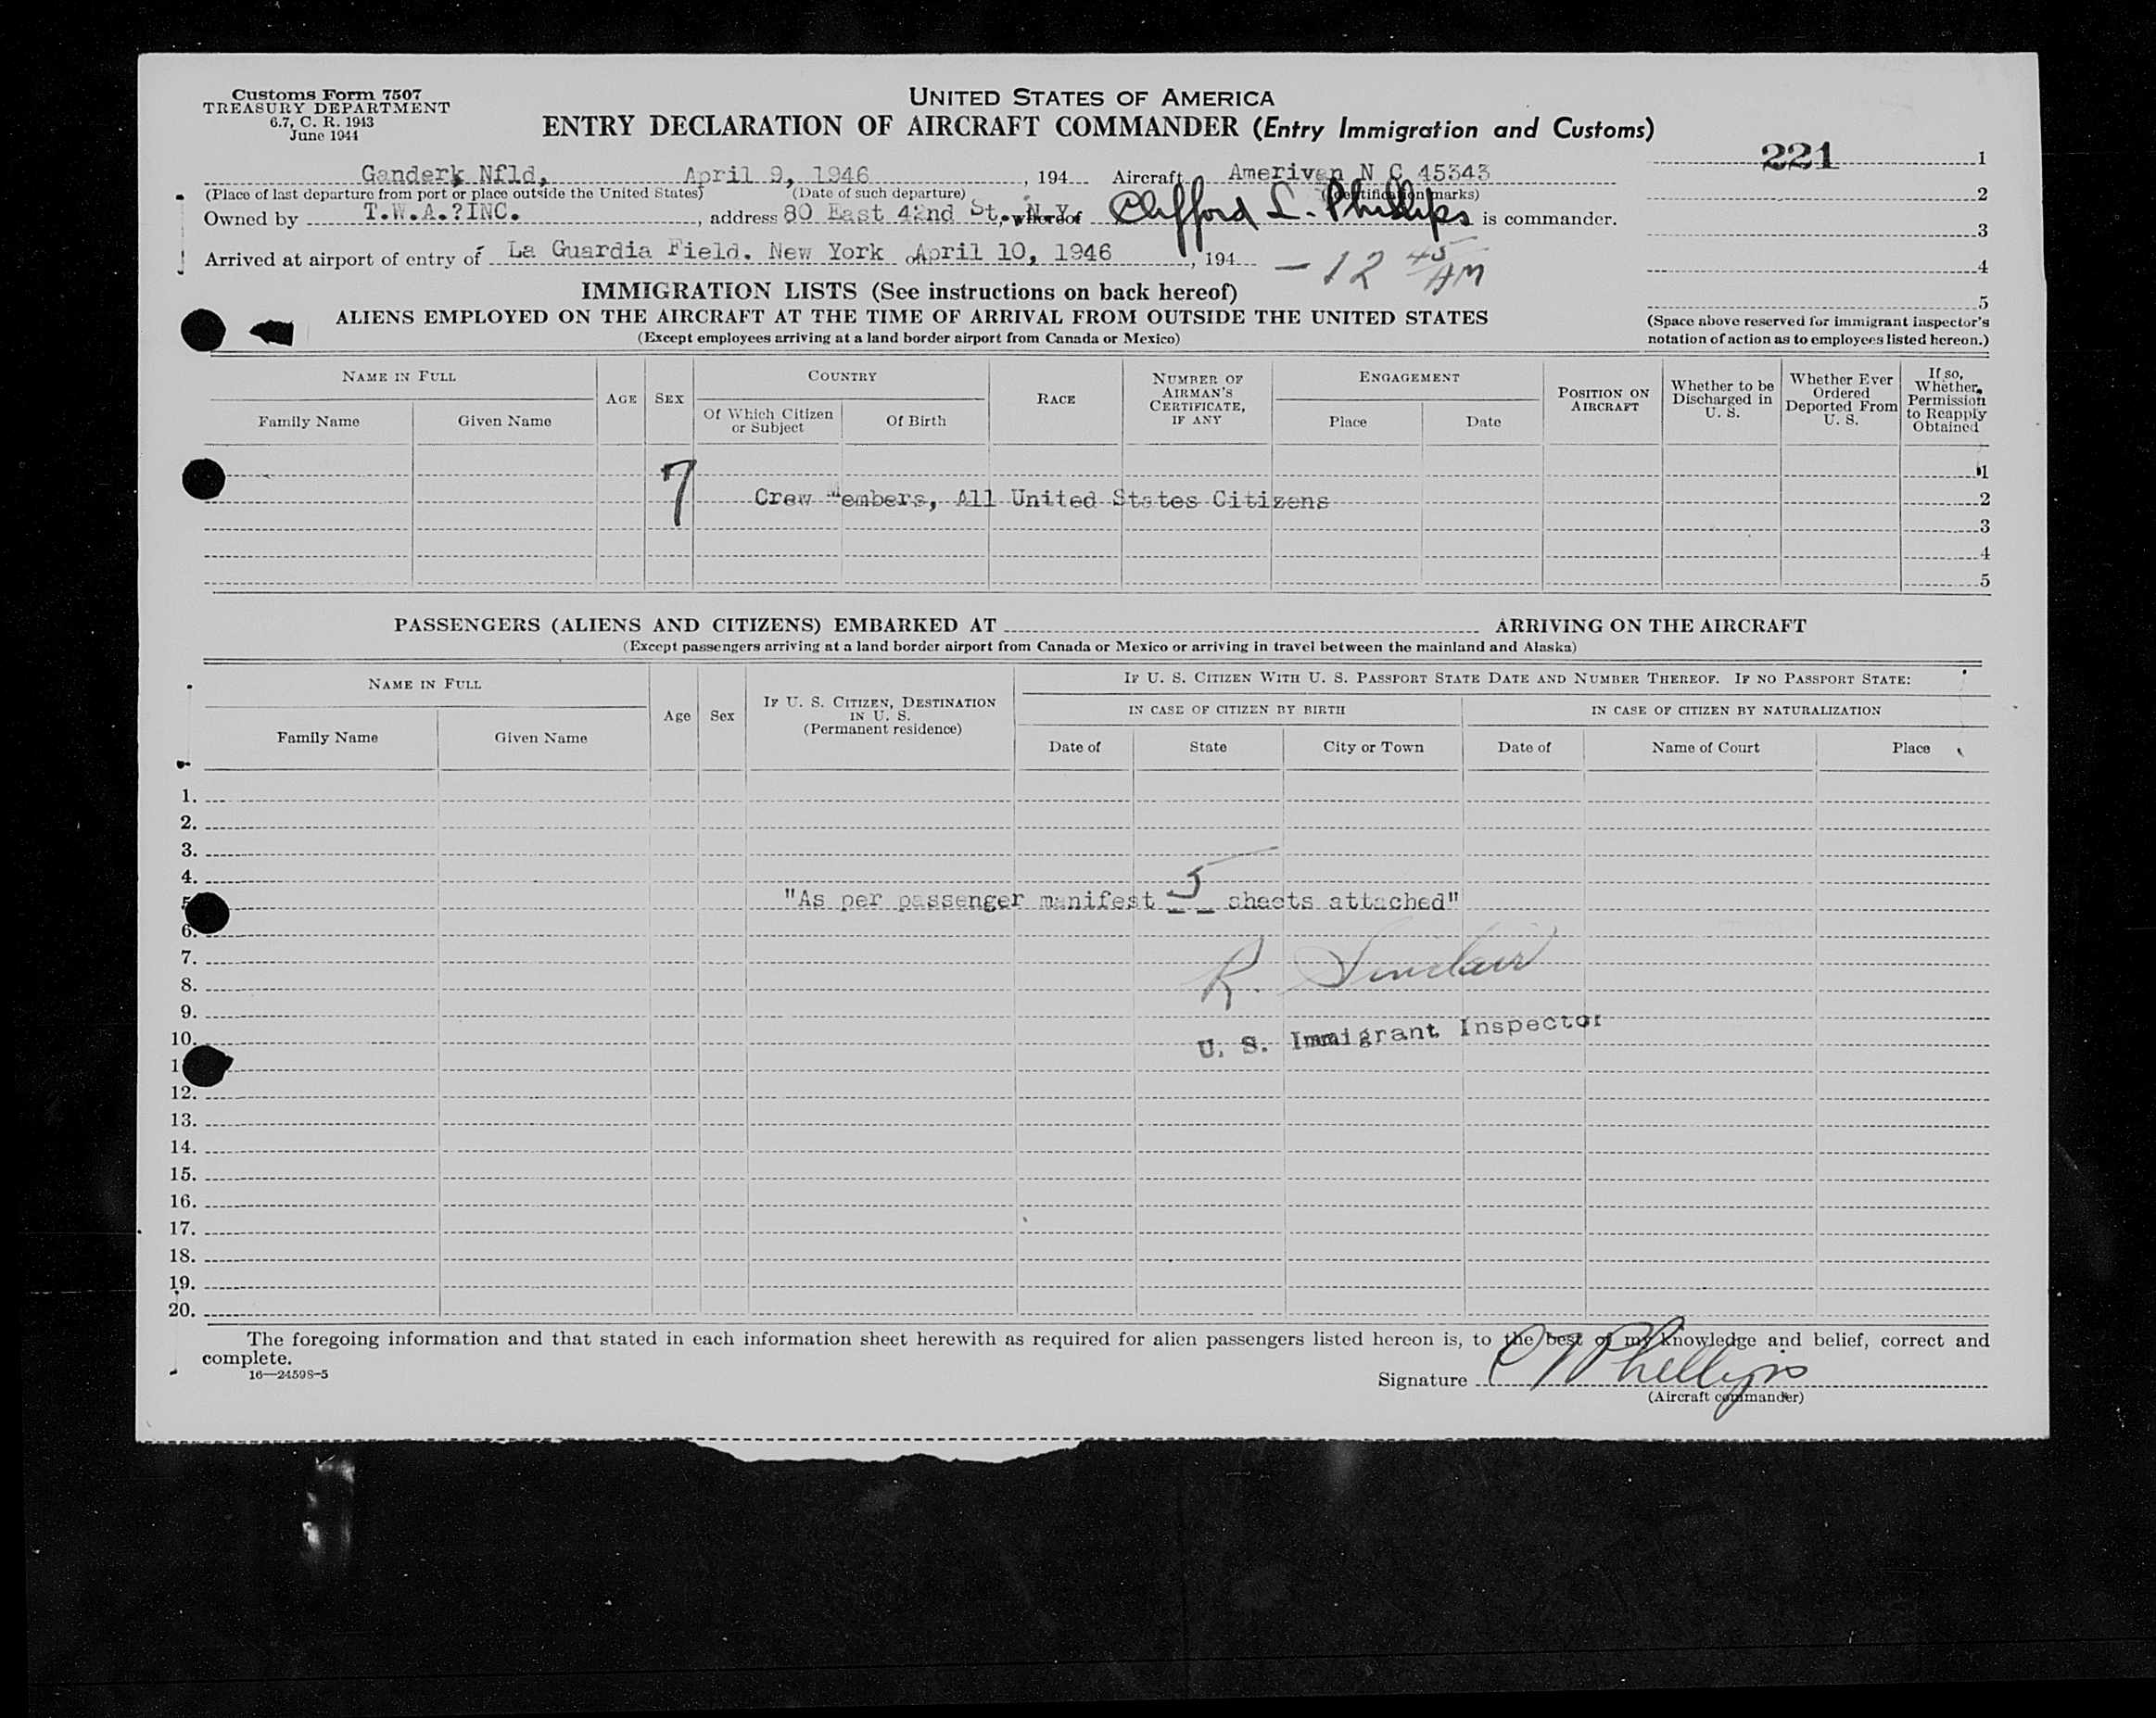 Customs Form 7507
TREASURY DEPARTMENT
6.7, C. R. 1943
June 1944
UNITED STATES OF AMERICA
ENTRY DECLARATION OF AIRCRAFT COMMANDER (Entry Immigration and Customs)
221 1
2
3
4
5
(Space above reserved for immigrant inspector's
notation of action as to employees listed hereon.)
Gander, Nfld, April 9, 1946, 194 Aircraft Ameriven N C 45343
(Place of last departure from port or place outside the United States) (Date of such departure) (Identification marks)
Owned by T.W.A.?INC., address 80 East 42nd St., N.Y. whereof Clifford L. Phillips is commander.
Arrived at airport of entry of La Guardia Field. New York April 10, 1946, 194 - 12 45 AM
IMMIGRATION LISTS (See instructions on back hereof)
ALIENS EMPLOYED ON THE AIRCRAFT AT THE TIME OF ARRIVAL FROM OUTSIDE THE UNITED STATES
(Except employees arriving at a land border airport from Canada or Mexico)
NAME IN FULL
Family Name Given Name
AGE SEX
COUNTRY
Of Which Citizen or Subject
Of Birth
RACE
NUMBER OF AIRMAN'S CERTIFICATE, IF ANY
ENGAGEMENT
Place Date
POSITION ON AIRCRAFT
Whether to be Discharged in U. S.
Whether Ever Ordered Deported From U. S.
If so, Whether Permission to Reapply Obtained
1
7 Crew Members, All United States Citizens 2
3
4
5
PASSENGERS (ALIENS AND CITIZENS) EMBARKED AT ARRIVING ON THE AIRCRAFT
(Except passengers arriving at a land border airport from Canada or Mexico or arriving in travel between the mainland and Alaska)
NAME IN FULL
Family Name Given Name
Age Sex
IF U. S. CITIZEN, DESTINATION IN U. S.
(Permanent residence)
IF U. S. CITIZEN WITH U. S. PASSPORT STATE DATE AND NUMBER THEREOF. IF NO PASSPORT STATE:
IN CASE OF CITIZEN BY BIRTH IN CASE OF CITIZEN BY NATURALIZATION
Date of State City or Town Date of Name of Court Place
1.
2.
3.
4.
5 "As per passenger manifest 5 sheets attached"
6.
7. R. Sinclair
8.
9.
10. U. S. Immigrant Inspector
1
12.
13.
14.
15.
16.
17.
18.
19.
20.
The foregoing information and that stated in each information sheet herewith as required for alien passengers listed hereon is, to the best of my knowledge and belief, correct and
complete.
16—24598-5
Signature C L Phillips
(Aircraft commander)